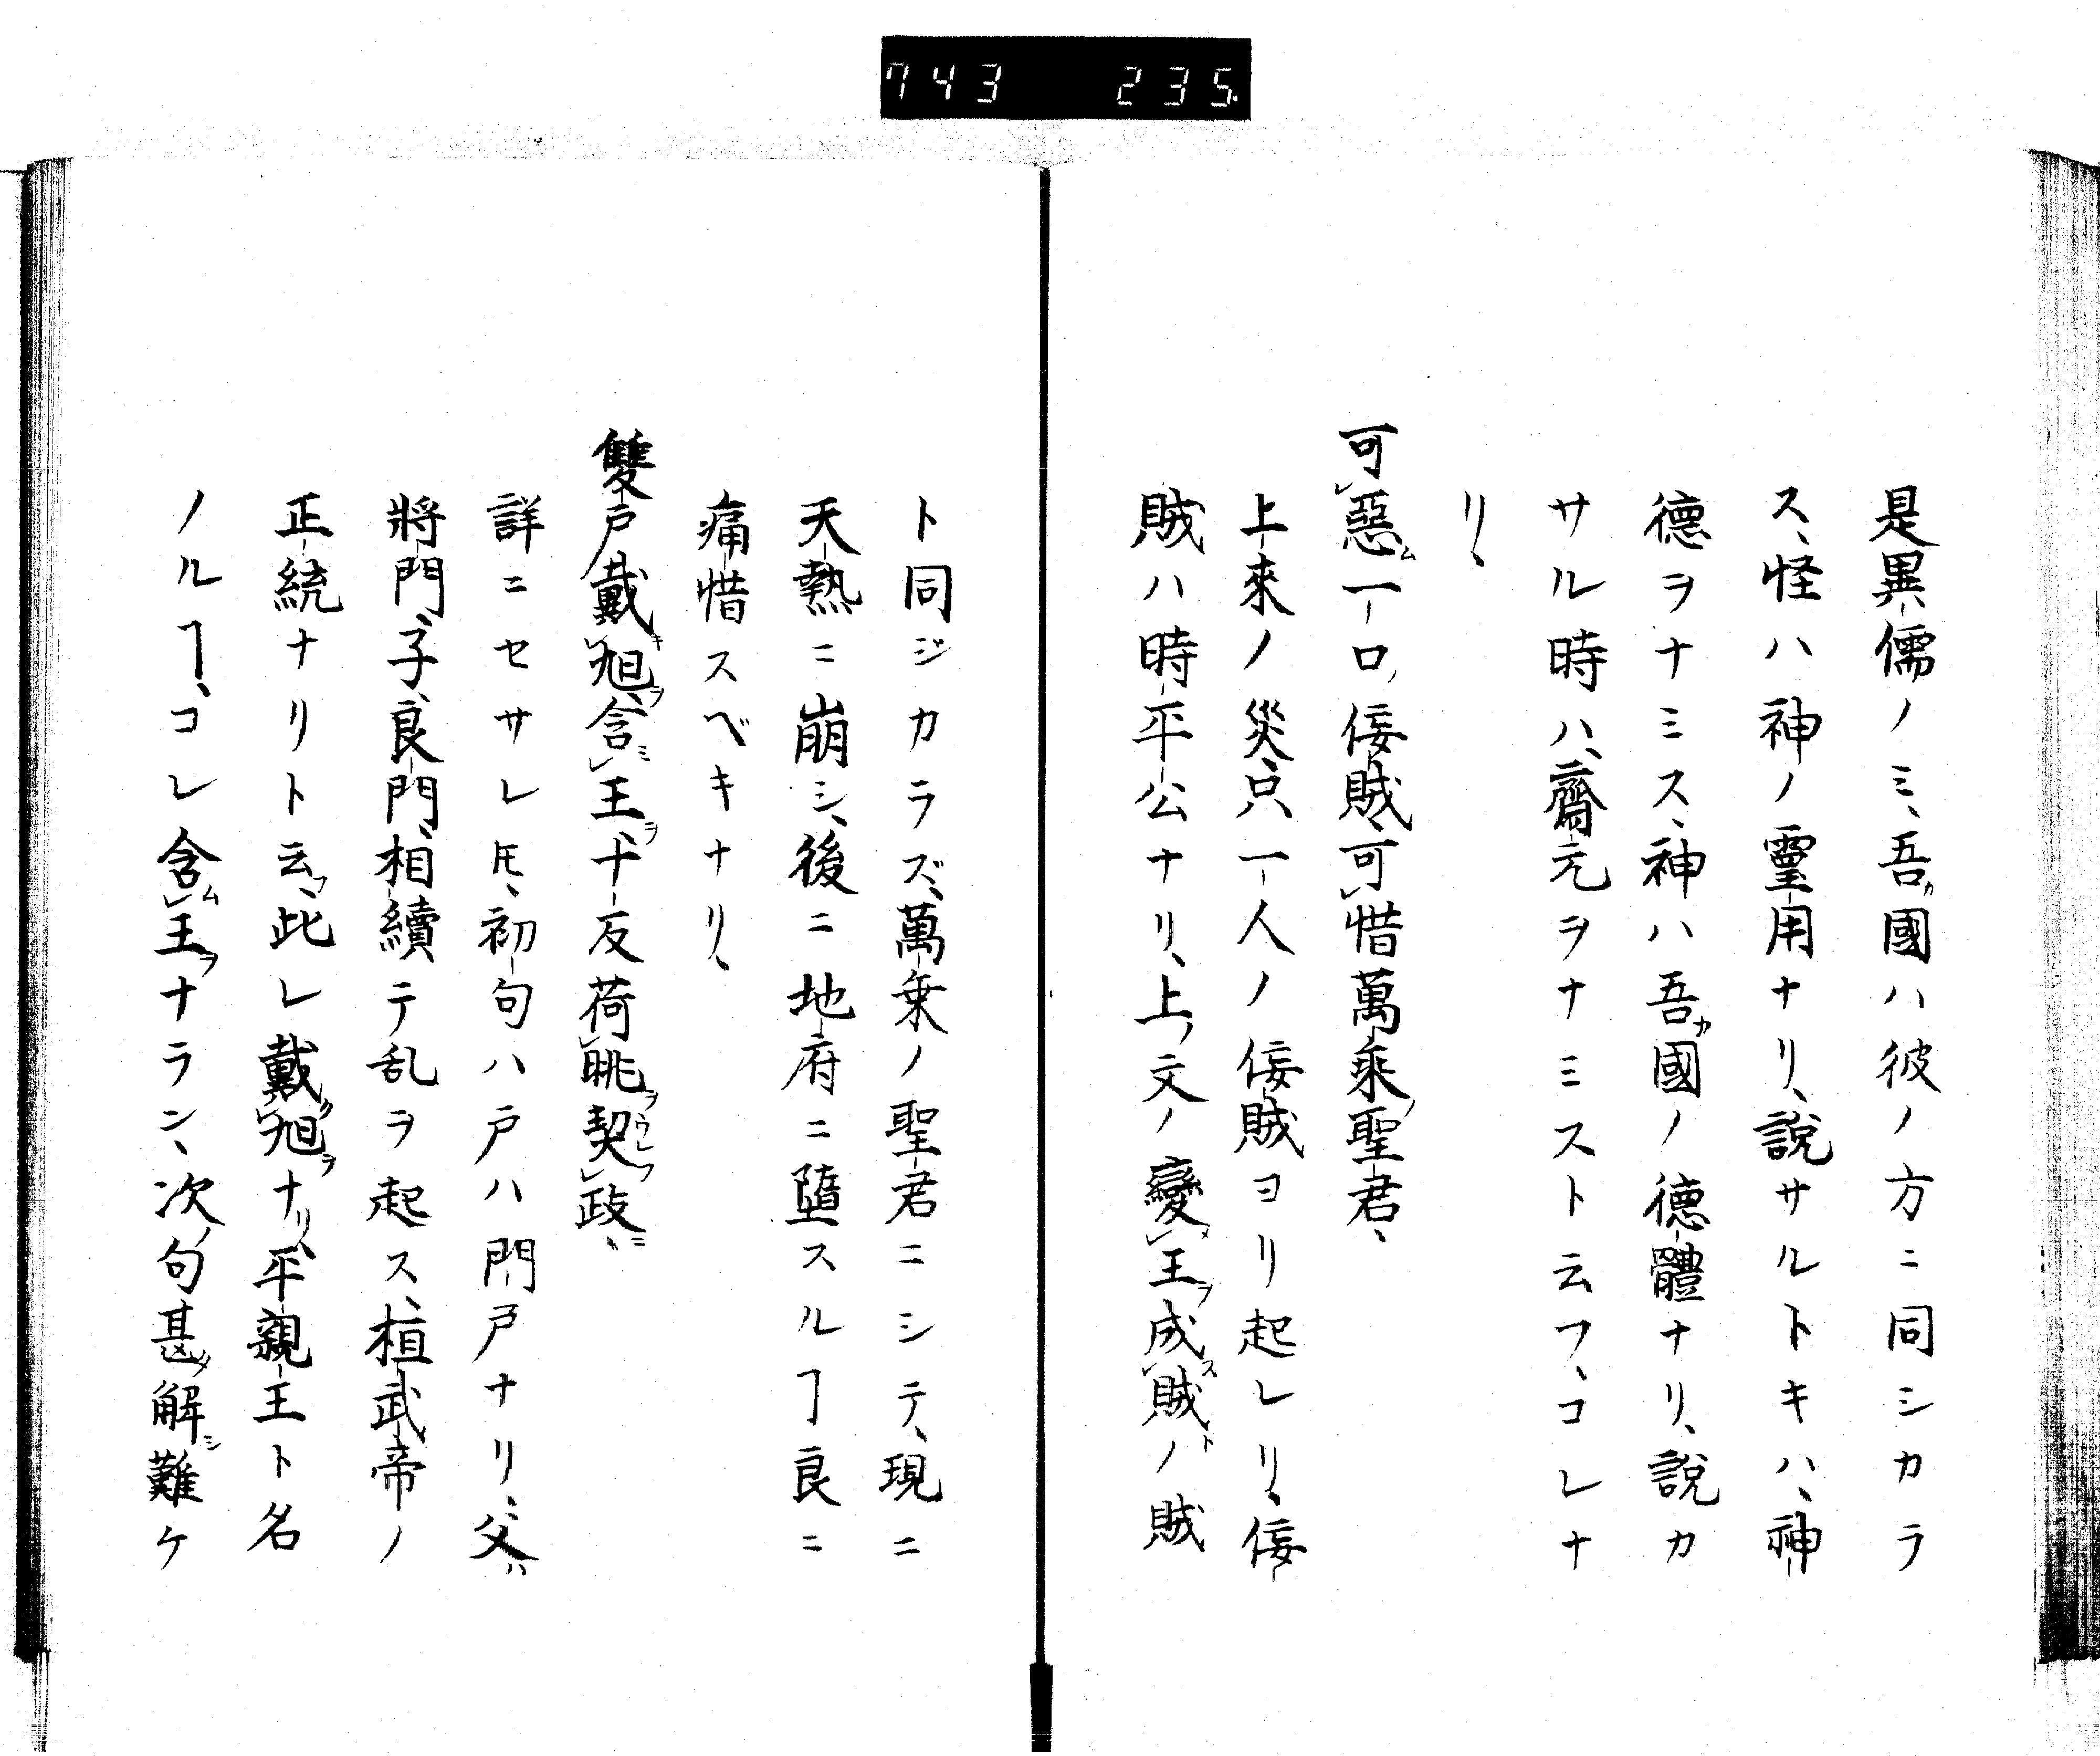 743 235.
是異儒ノミ、吾カ國ハ彼ノ方ニ同シカラ
ス、怪ハ神ノ靈用ナリ、說サルトキハ、神
德ヲナミス、神ハ吾カ國ノ德體ナリ、說カ
サル時ハ、齋元ヲナミスト云フ、コレナ
リ、
可レ惡ム一口、佞賊、可レ惜萬乘ノ聖君、
上來ノ災、只一人ノ佞賊ヨリ起レリ、佞
賊ハ時平公ナリ、上ノ文ノ變レ王ヲ成スレ賊トノ賊
ト同ジカラズ、萬乗ノ聖君ニシテ、現ニ
天熱ニ崩シ、後ニ地府ニ墮スルヿ良ニ
痛惜スベキナリ、
雙戶戴キレ旭ヲ、含ミレ王ヲ、十反荷レ眺ヲ契フレ政ニ、
詳ニセサレ𪜈、初句ハ戶ハ門戶ナリ、父ハ
將門、子ハ良門、相續テ乱ヲ起ス、桓武帝ノ
正統ナリト云フ、此レ戴クレ旭ヲナリ、平親王ト名
ノルヿ、コレ含ムレ王ヲナラン、次ノ句甚タ解シ難ケ